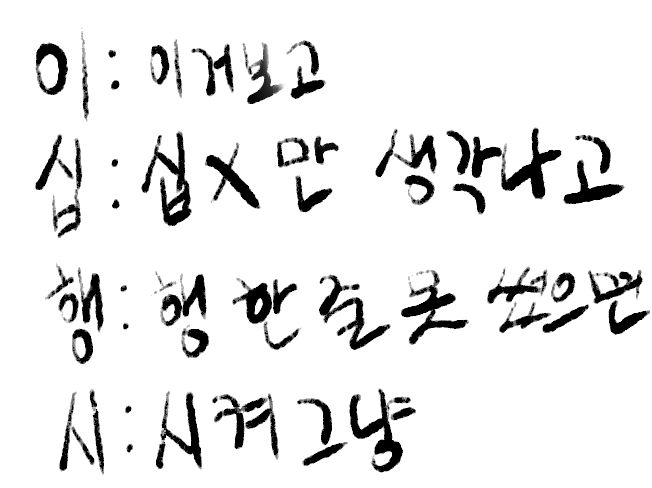 이: 이거보고
십: 십X만 생각나고
행: 행 한줄 못 썼으면
시: 시켜 그냥